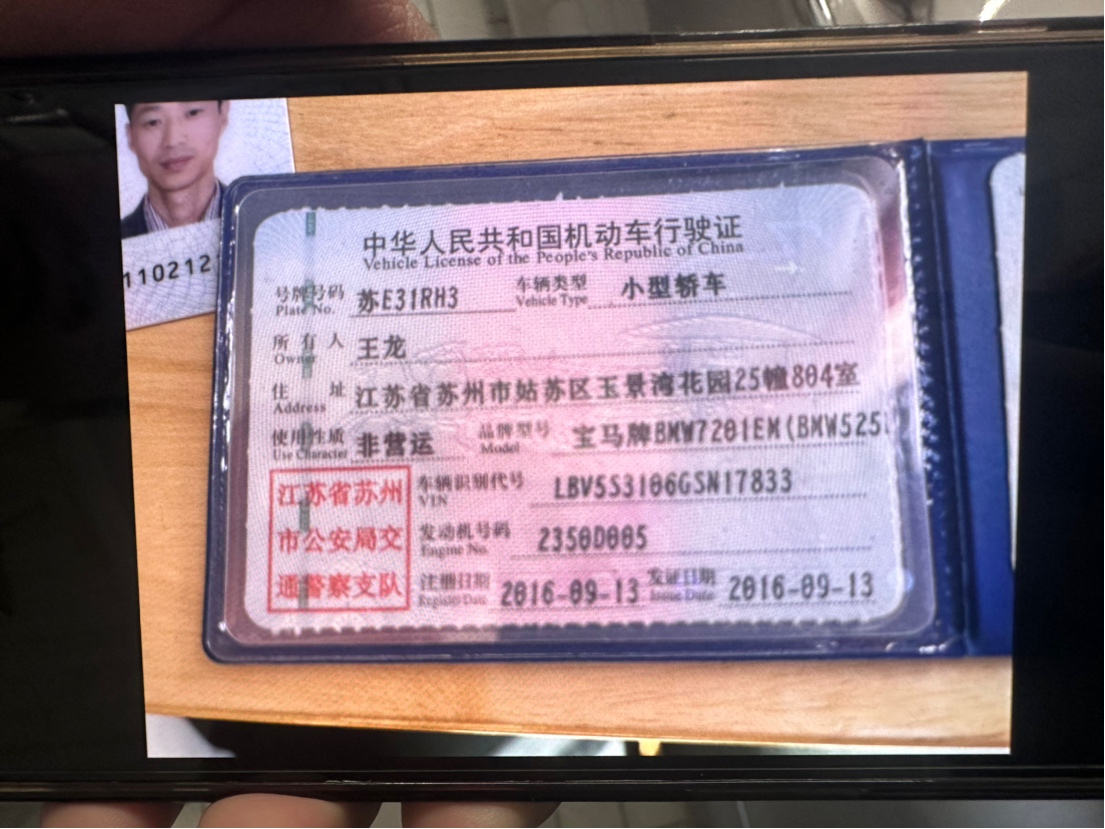 中华人民共和国机动车行驶证
Vehicle License of the People's Republic of China
号牌号码 苏E31RH3 车辆类型 小型轿车
Plate No. Vehicle Type
所有人 王龙
Owner
住址 江苏省苏州市姑苏区玉景湾花园25幢804室
Address
使用性质 非营运 品牌型号 宝马牌BMW7201EM(BMW525
Use Character Model
江苏省苏州
市公安局交
通警察支队
车辆识别代号 LBV5S3106GSN17833
VIN
发动机号码 2350D005
Engine No.
注册日期 2016-09-13 发证日期 2016-09-13
Register Date Issue Date
110212